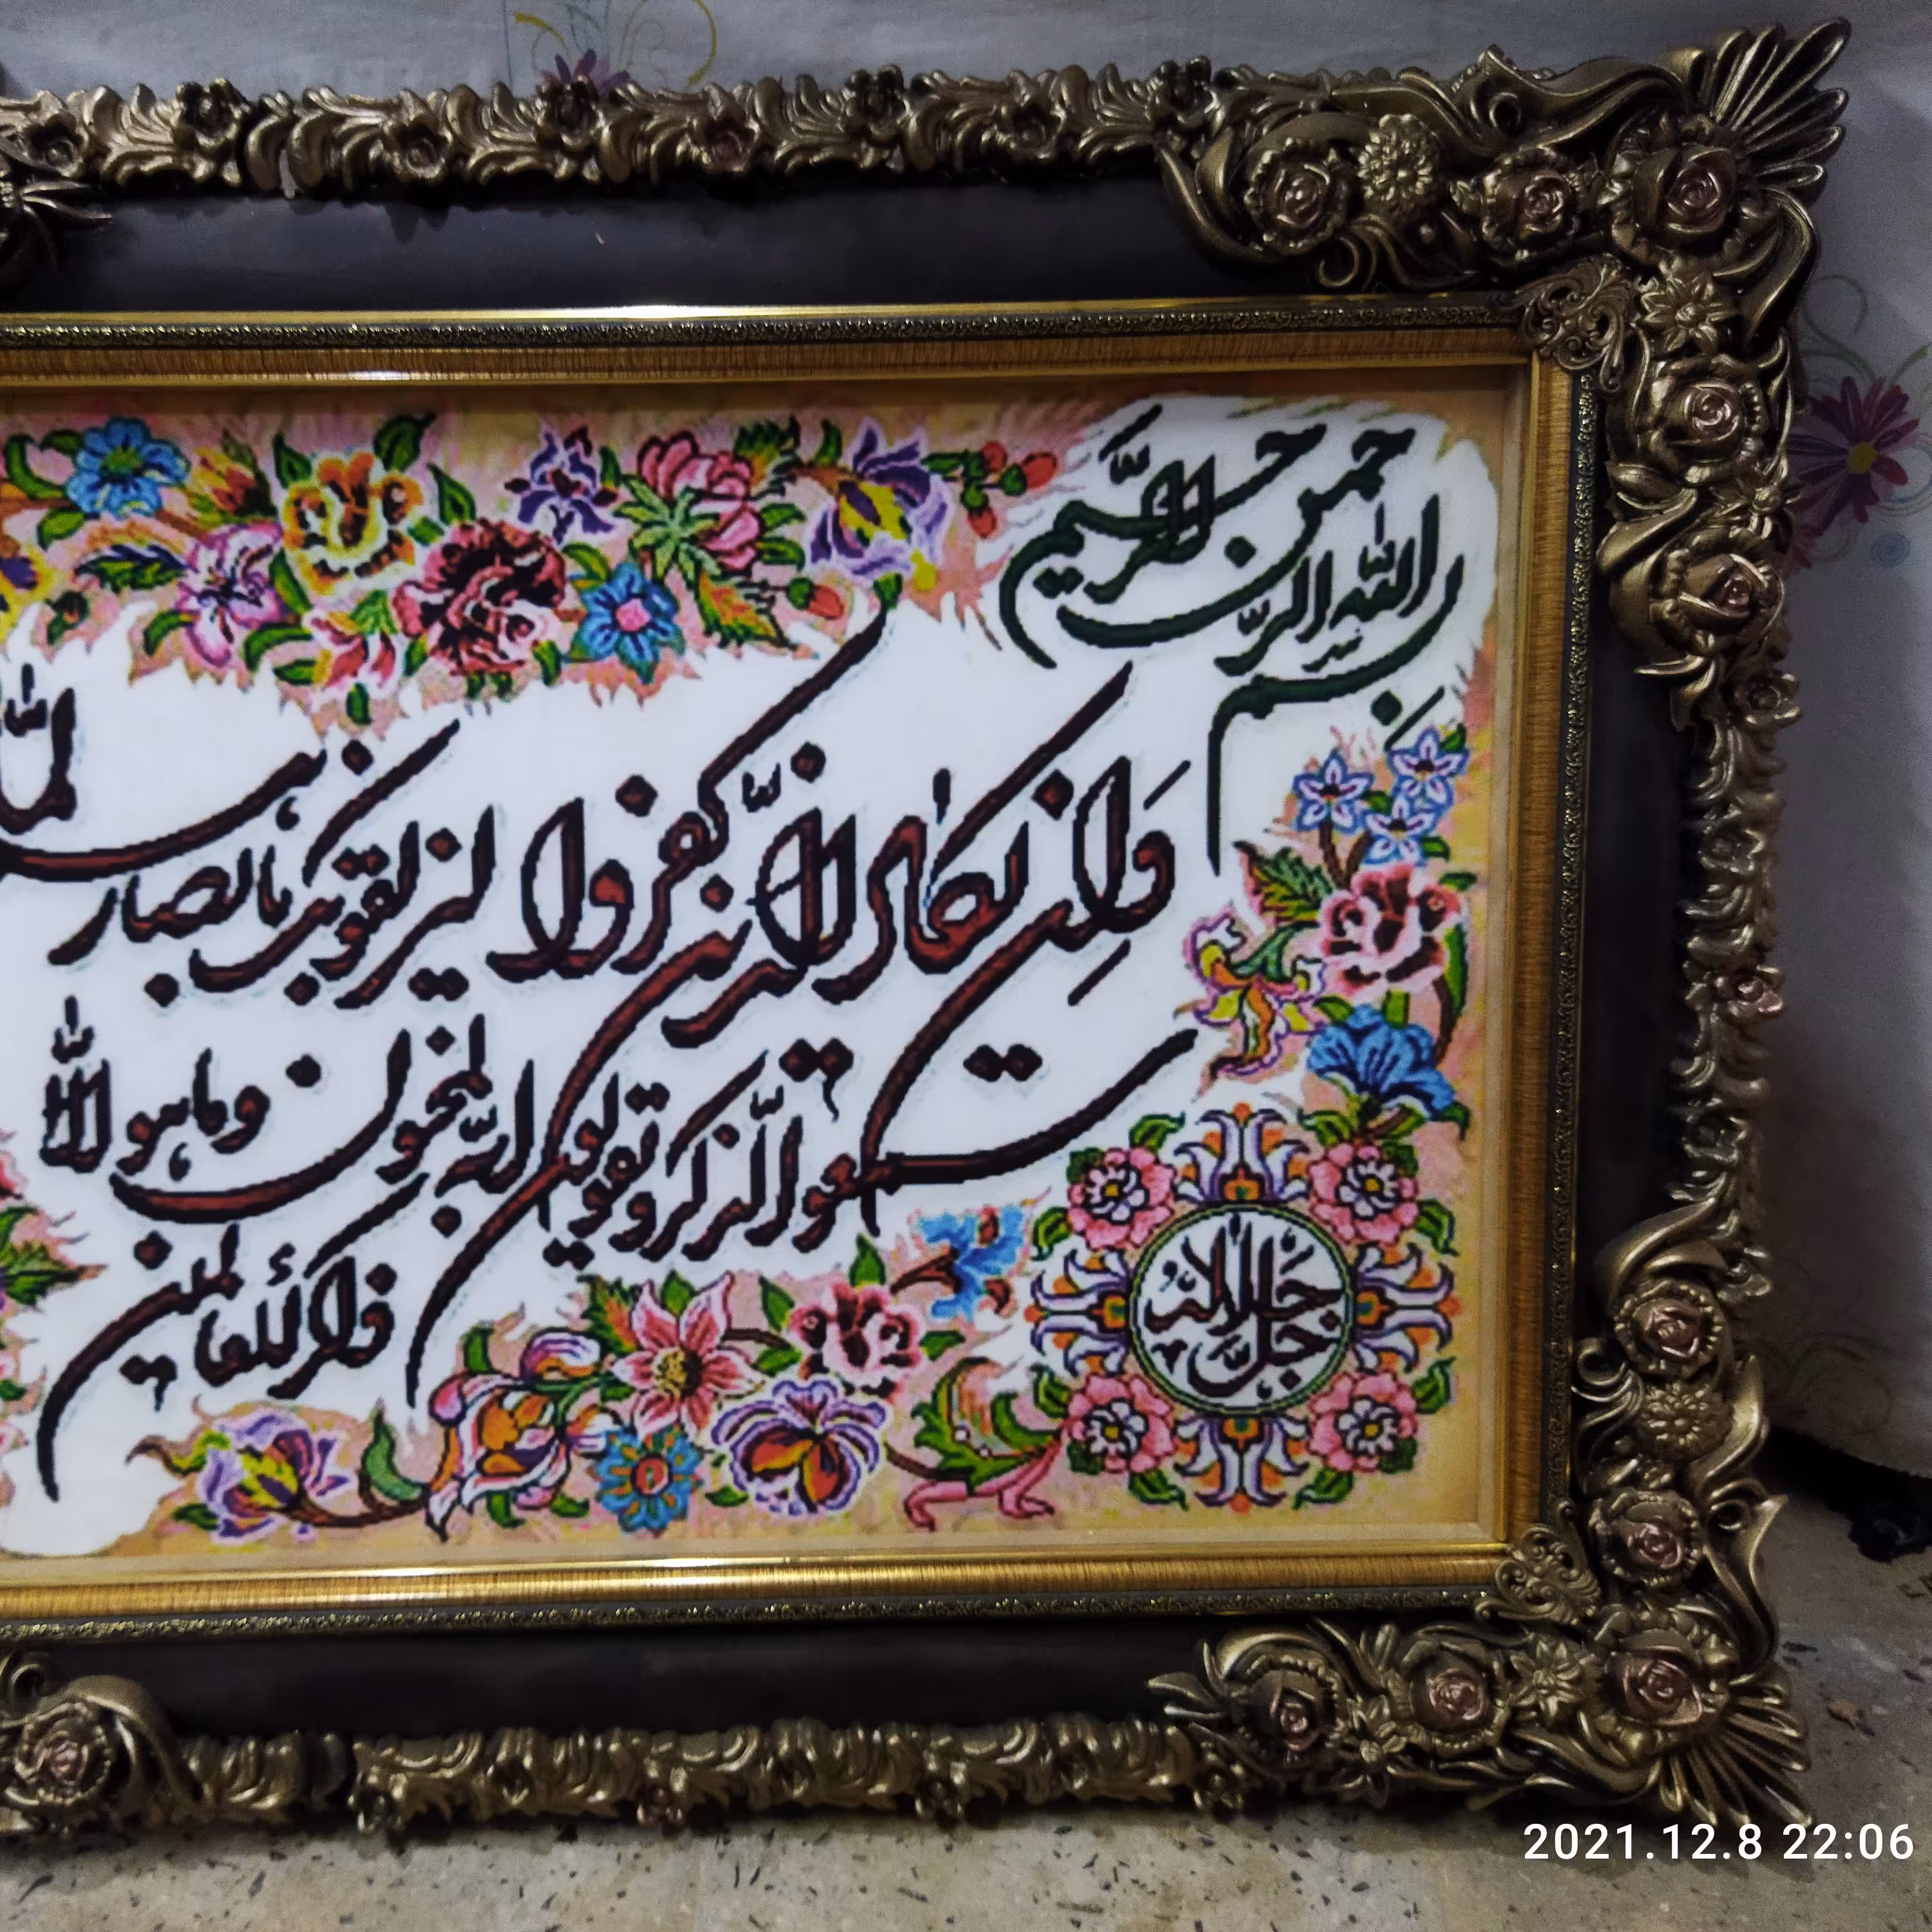 بسم الله الرحمن الرحیم
وَاِن یَکادُ الَّذین کفروا لیزلقونک بابصارهم لمّا
سمعوا الذکر و یقولون انه لمجنون وما هو الّا
ذکرٌ للعالمین
جل جلاله
2021.12.8 22:06